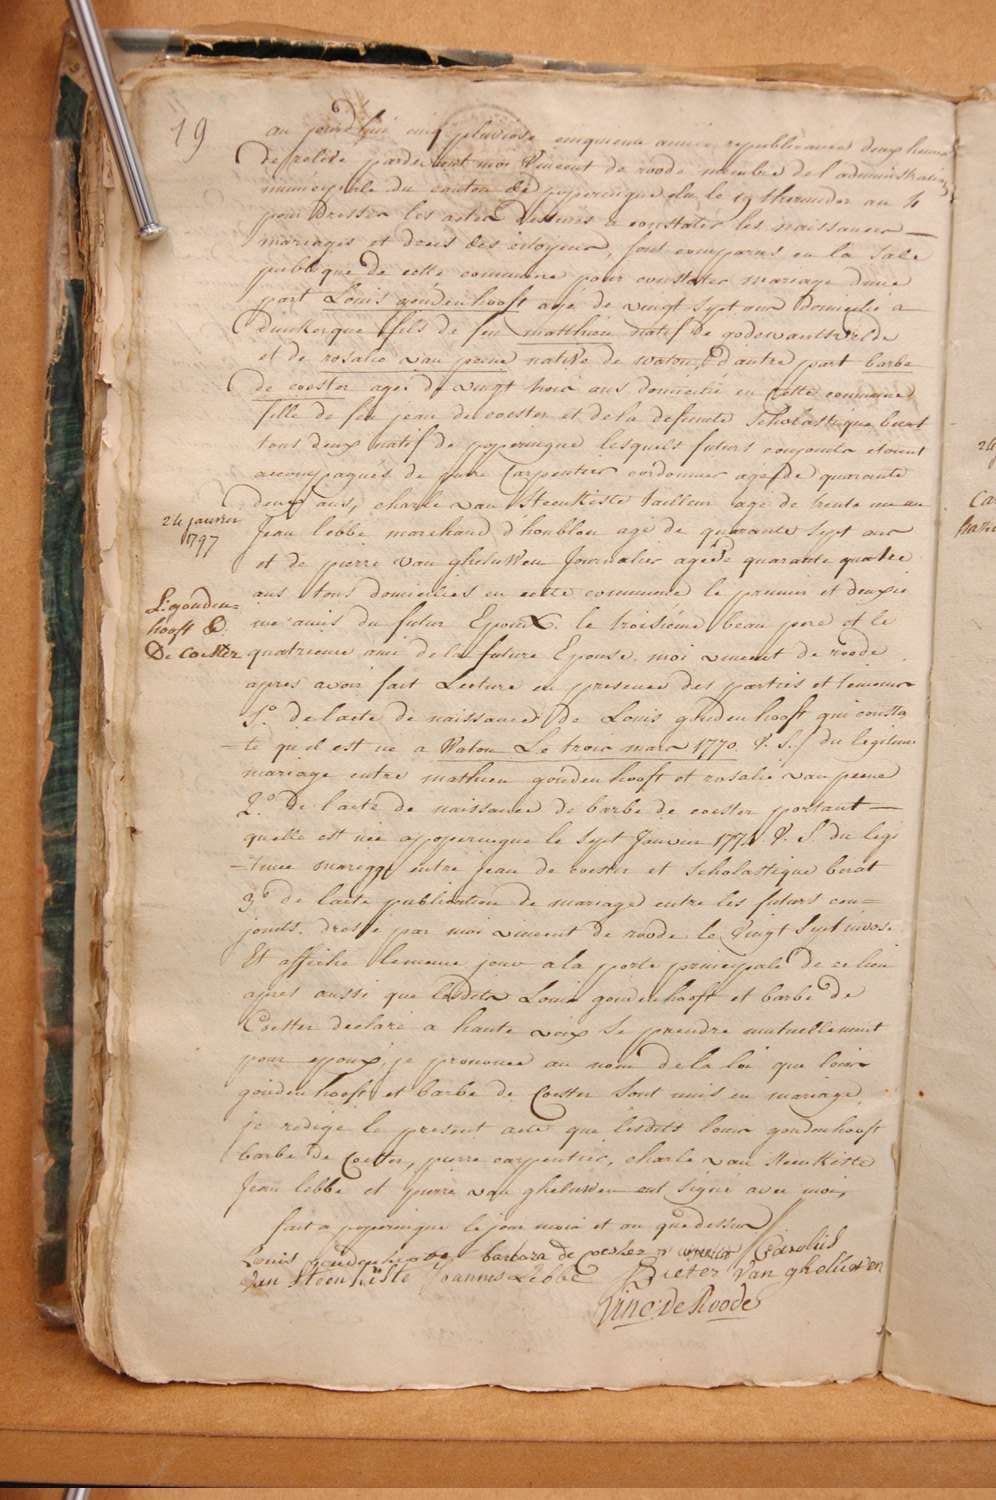 19
au jourd'hui cinq pluviose cinquieme année republicaine deux heures
de relevé pardevant moi Vincent de roode membre de l'administration
municipale du canton de poperingue elu le 19 thermidor an 4
pour dresser les actes destinés a constater les naissances
mariages et decés des citoyens, sont comparus en la sale
publique de cette commune pour constater mariage d'une
part Louis goudenhooft agé de vingt sept ans domicilié a
dunkerque fils de feu matthieu natif de godewaersvelde
et de rosalie van peene native de watou, & d'autre part barbe
de coester agée de vingt trois ans domicilié en cette commune
fille de feu jean de coester et de la defunte Scholastique
tous deux natif de poperingue lesquels futurs conjoints etoient
accompagnés de piere Carpentier cordonnier agé de quarante
deux ans, charle van steenkiste tailleur agé de trente un an
Jean lebbe marchand d'houblon agé de quarante sept ans
et de pierre van gheluwen Journalier agé de quarante quatre
ans tous domiciliés en cette commune le premier et deuxie
me amis du futur Epoux, le troisième beau pere et le
quatrieme ami de la future Epouse, moi vincent de roode
apres avoir fait Lecture en presence des parties et temoins
1º. de l'acte de naissance de Louis goudenhooft qui consta
-te qu'il est né a Watou Le trois mars 1770. V. S. / du legitime
mariage entre mathieu goudenhooft et rosalie van peene
2.º de l'acte de naissance de barbe de coester portant
quelle est née a poperingue le sept Janvier V. S du legi
-time mariage entre jean de coester et scholastique
3º de l'acte publication de mariage entre les futurs con=
joints. dressé par moi vincent de roode le Vingt Sept nivose
Et affiché le meme jour a la porte principale de ce lieu
apres aussi que lesdits Louis goudenhooft et barbe de
Coester declaré a haute voix se prendre mutuellement
pour epoux, je prononce au nom de la loi que louis
goudenhooft et barbe de Coester sont unis en mariage,
je redigé le present acte que lesdits louis goudenhooft
barbe de Coester, pierre carpentier, charle van steenkiste
Jean lebbe et pierre van gheluwen ont signé avec moi,
fait a poperingue le jour mois et an que dessus
24 janvier
1797
L. gouden=
hooft &
De coester
Louis goudenhooft barbara de Coester Carolus
van Steenkiste Joannes Lebbe Pieter Van gheluwen
Vinc: de Roode